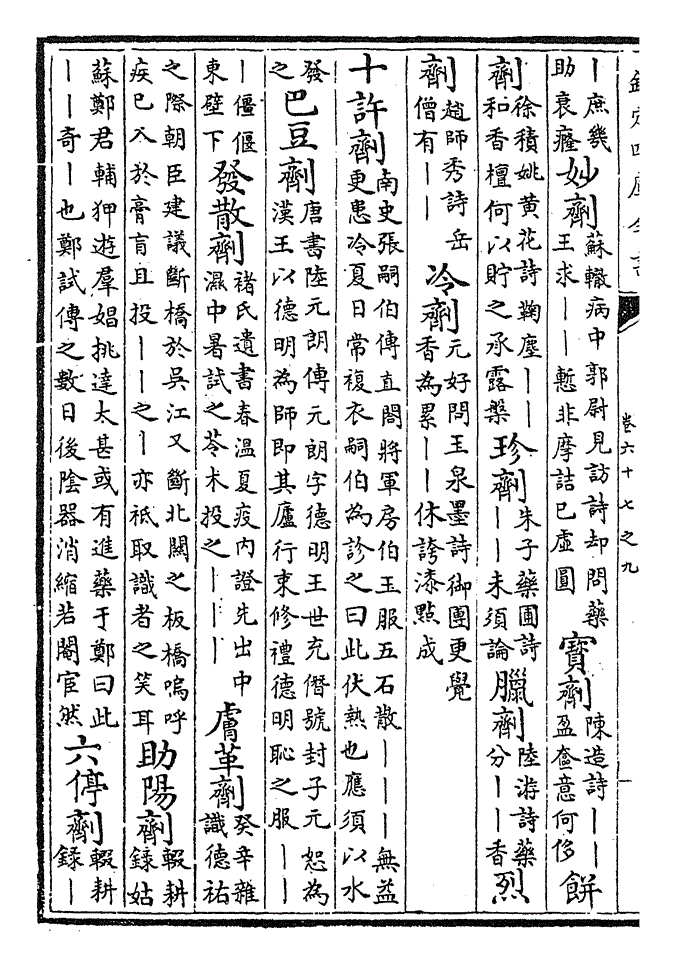 欽定四庫全書
卷六十七之九
｜庶幾助衰癃妙劑蘇轍病中郭尉見訪詩却問藥王求｜｜慙非摩詰已虛圓寶劑陳造詩｜｜盈奩意何侈餅
劑徐積姚黄花詩鞠塵｜｜和香檀何以貯之承露槃珍劑朱子藥圃詩｜｜未須論臘劑陸游詩藥分｜｜香烈
劑趙師秀詩岳僧有｜｜冷劑元好問玉泉墨詩御團更覺香為累｜｜休誇漆點成
十許劑南史張嗣伯傳直閤將軍房伯玉服五石散｜｜｜無益更患冷夏日常複衣嗣伯為診之曰此伏熱也應須以水
發之巴豆劑唐書陸元朗傳元朗字德明王世充僭號封子元恕為漢王以德明為師即其廬行束修禮德明恥之服｜｜
｜僵偃東壁下發散劑褚氏遺書春溫夏疫内證先出中濕中暑試之苓术投之｜｜｜膚革劑癸辛雜識德祐
之際朝臣建議斷橋於吳江又斷北闗之板橋嗚呼疾已入於膏肓且投｜｜之｜亦祗取識者之笑耳助陽劑輟耕録姑
蘇鄭君輔狎遊羣娼挑達太甚或有進藥于鄭曰此｜｜奇｜也鄭試傅之數日後陰器消縮若閹宦然六停劑輟耕録｜